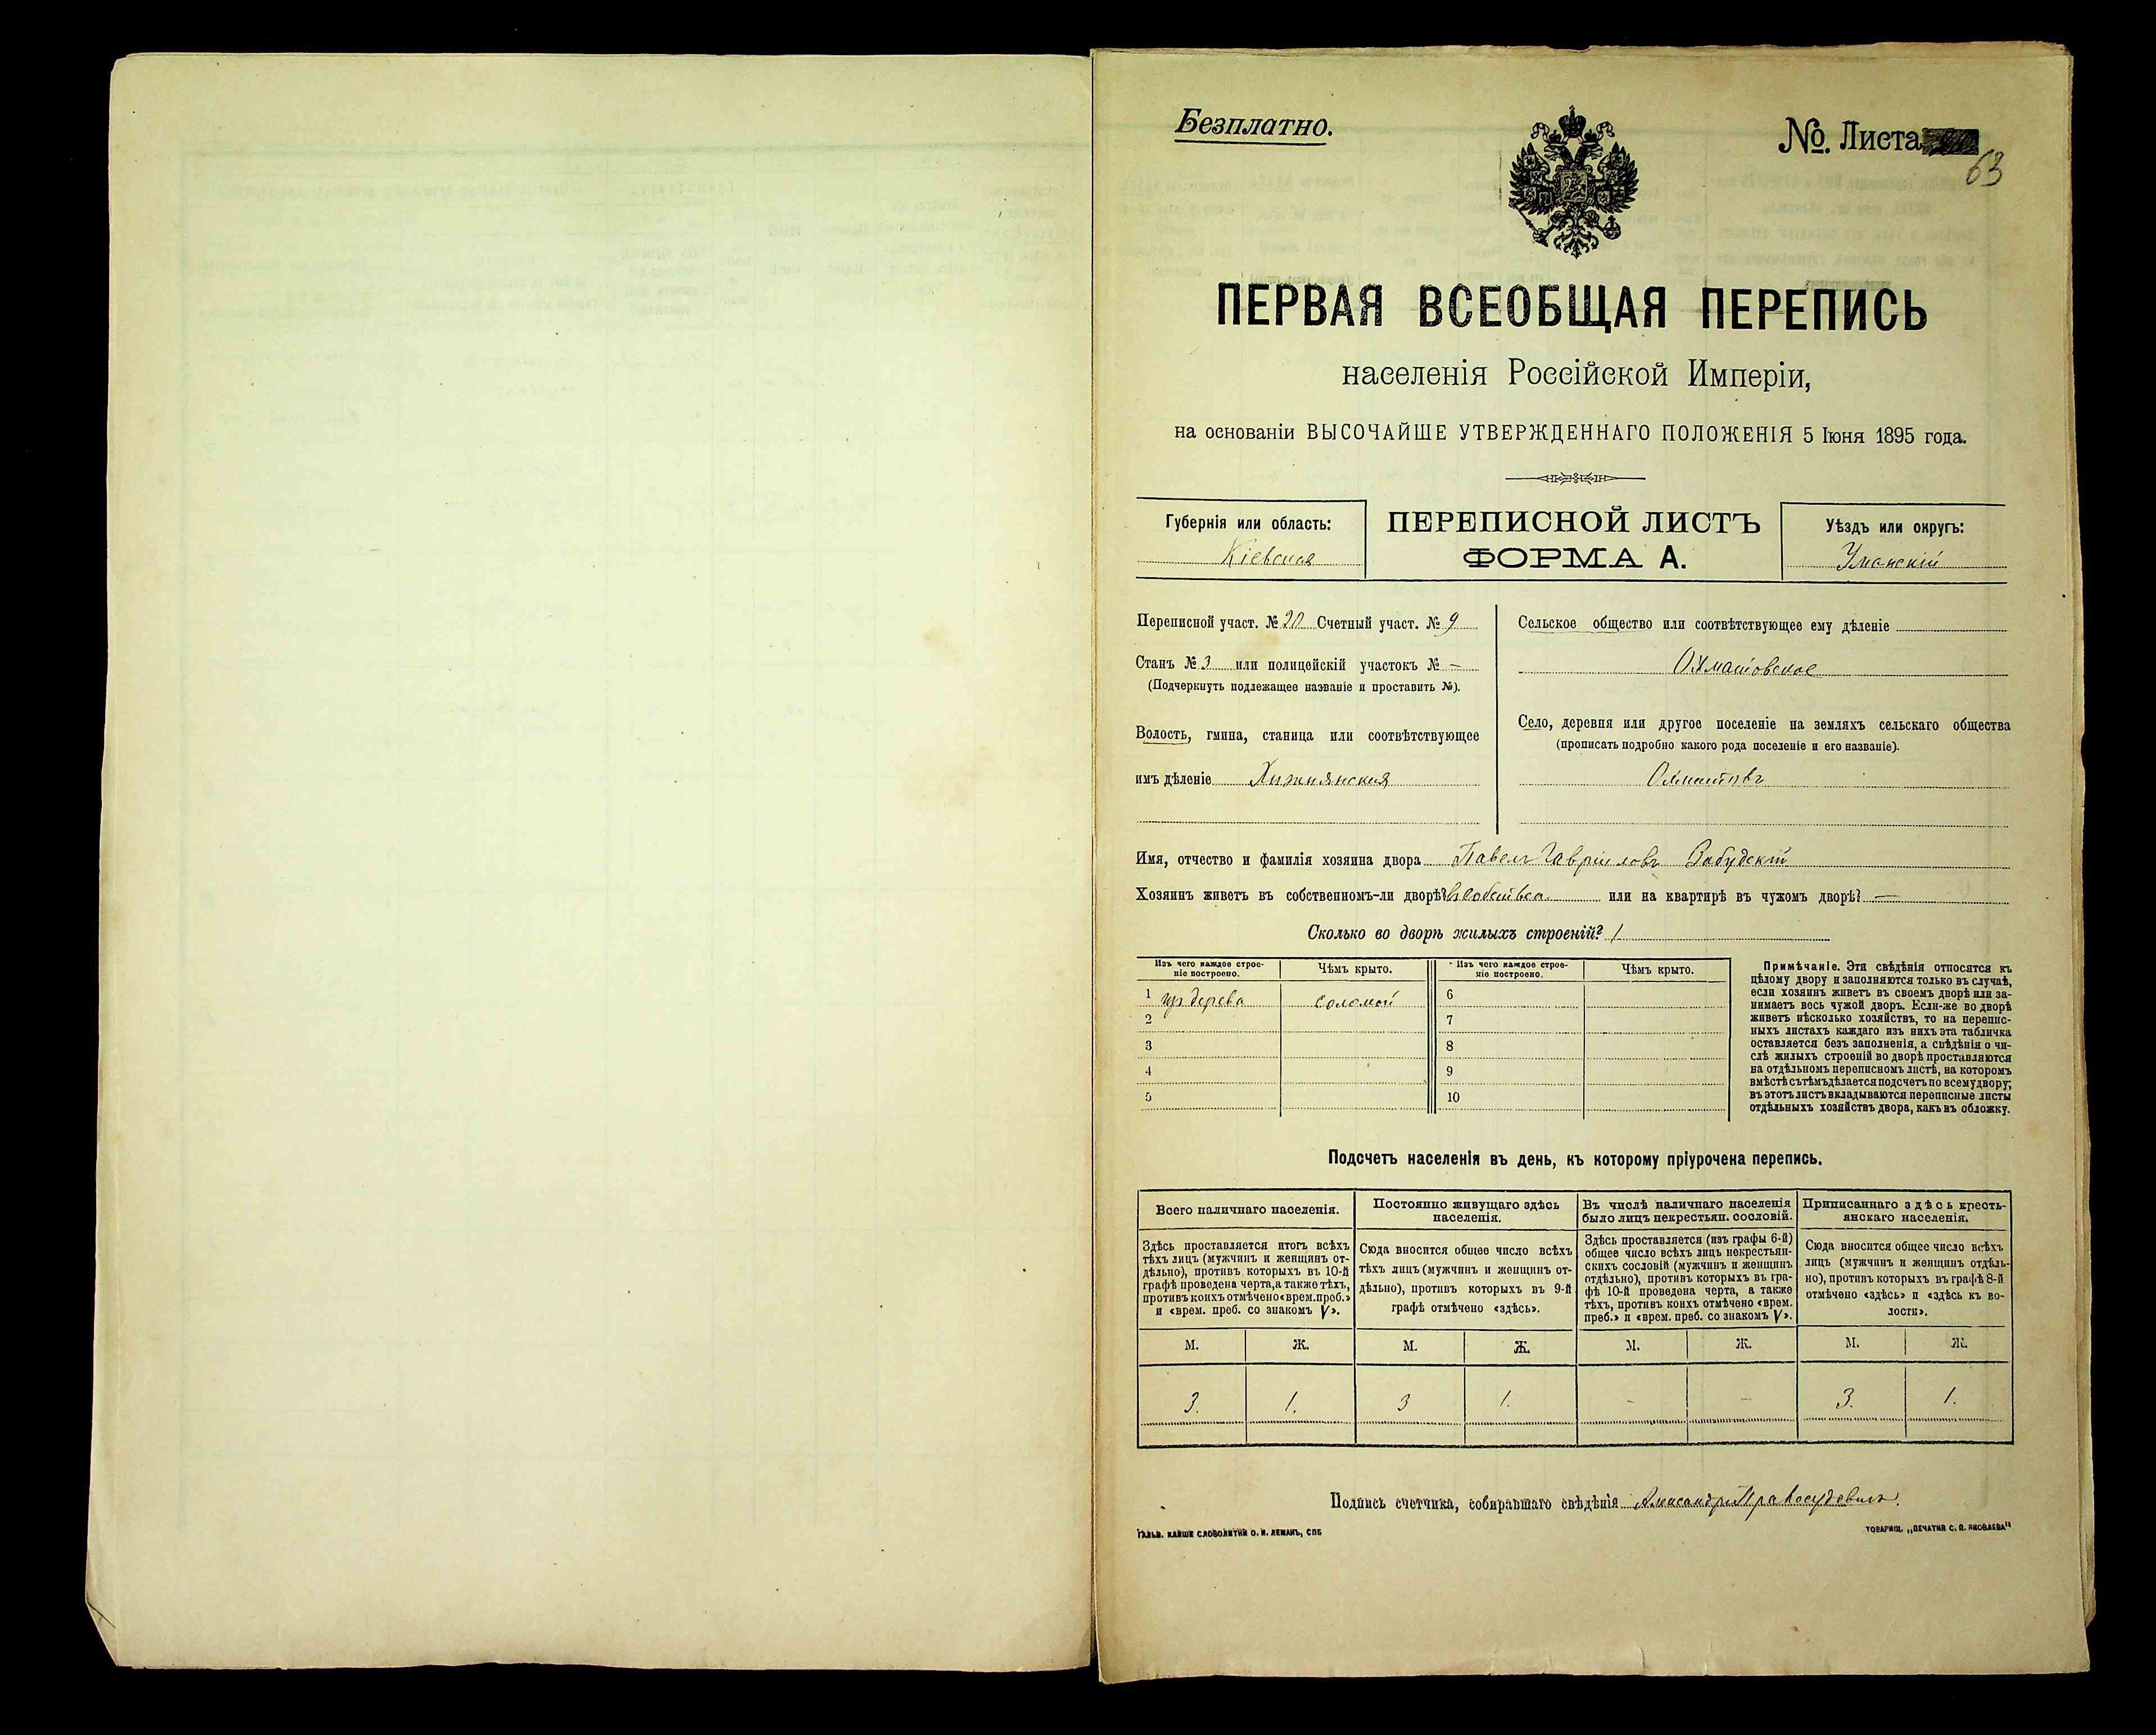 Безплатно.
№. Листа
63
ПЕРВАЯ ВСЕОБЩАЯ ПЕРЕПИСЬ
населенія Россійской Имперіи,
на основаніи ВЫСОЧАЙШЕ УТВЕРЖДЕННАГО ПОЛОЖЕНІЯ 5 Іюня 1895 года.
Губернія или область:
Кіевская
ПЕРЕПИСНОЙ ЛИСТЪ
ФОРМА А.
Уѣздъ или округъ:
Уманскій
Переписной участ. № 20 Счетный участ. № 9
Станъ № 3 или полицейскій участокъ № —
(Подчеркнуть подлежащее названіе и проставить №).
Волость, гмина, станица или соотвѣтствующее
имъ дѣленіе Хижнянская
Сельское общество или соотвѣтствующее ему дѣленіе
Охматовское
Село, деревня или другое поселеніе на земляхъ сельскаго общества
(прописать подробно какого рода поселеніе и его названіе).
Охматовъ
Имя, отчество и фамилія хозяина двора Павелъ Гавріиловъ Забудскій
Хозяинъ живетъ въ собственномъ-ли дворѣ? въ собствен. или на квартирѣ въ чужомъ дворѣ? —
Сколько во дворѣ жилыхъ строеній? 1
Изъ чего каждое строе-
ніе построено.
Чѣмъ крыто.
Изъ чего каждое строе-
ніе построено.
Чѣмъ крыто.
1 изъ дерева соломой 6
2 7
3 8
4 9
5 10
Примѣчаніе. Эти свѣдѣнія относятся къ
цѣлому двору и заполняются только въ случаѣ,
если хозяинъ живетъ въ своемъ дворѣ или за-
нимаетъ весь чужой дворъ. Если-же во дворѣ
живетъ нѣсколько хозяйствъ, то на перепис-
ныхъ листахъ каждаго изъ нихъ эта табличка
оставляется безъ заполненія, а свѣдѣнія о чи-
слѣ жилыхъ строеній во дворѣ проставляются
на отдѣльномъ переписномъ листѣ, на которомъ
вмѣстѣ съ тѣмъ дѣлается подсчетъ по всему двору;
въ этотъ листъ вкладываются переписные листы
отдѣльныхъ хозяйствъ двора, какъ въ обложку.
Подсчетъ населенія въ день, къ которому пріурочена перепись.
Всего наличнаго населенія.
Здѣсь проставляется итогъ всѣхъ
тѣхъ лицъ (мужчинъ и женщинъ от-
дѣльно), противъ которыхъ въ 10-й
графѣ проведена черта, а также тѣхъ,
противъ коихъ отмѣчено «врем. преб.»
и «врем. преб. со знакомъ V».
Постоянно живущаго здѣсь
населенія.
Сюда вносится общее число всѣхъ
тѣхъ лицъ (мужчинъ и женщинъ от-
дѣльно), противъ которыхъ въ 9-й
графѣ отмѣчено «здѣсь».
Въ числѣ наличнаго населенія
было лицъ некрестьян. сословій.
Здѣсь проставляется (изъ графы 6-й)
общее число всѣхъ лицъ некрестьян-
скихъ сословій (мужчинъ и женщинъ
отдѣльно), противъ которыхъ въ гра-
фѣ 10-й проведена черта, а также
тѣхъ, противъ коихъ отмѣчено «врем.
преб.» и «врем. преб. со знакомъ V».
Приписаннаго здѣсь кресть-
янскаго населенія.
Сюда вносится общее число всѣхъ
лицъ (мужчинъ и женщинъ отдѣль-
но), противъ которыхъ въ графѣ 8-й
отмѣчено «здѣсь» и «здѣсь къ во-
лости».
М. Ж. М. Ж. М. Ж. М. Ж.
3. 1. 3 1. - - 3. 1.
Подпись счетчика, собиравшаго свѣдѣнія Александръ
ГАЛЬВ. КЛИШЕ СЛОВОЛИТНИ О. И. ЛЕМАНЪ, СПБ
ТОВАРИЩ. „ПЕЧАТНЯ С. П. ЯКОВЛЕВА"